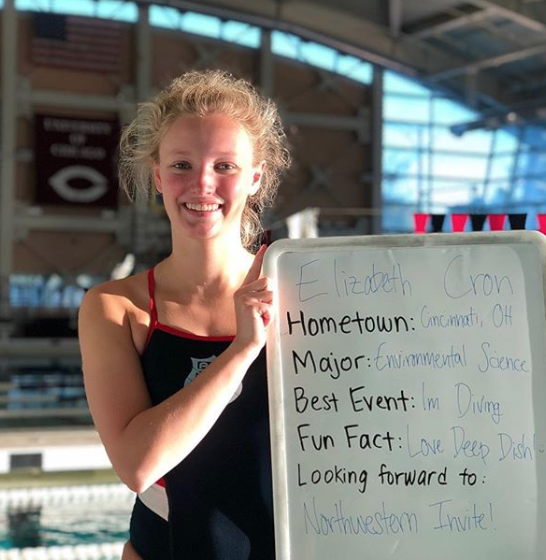 UNIVERSITY OF
CHICAGO
Elizabeth Cron
Hometown: Cincinnati, OH
Major: Environmental Science
Best Event: 1m Diving
Fun Fact: Love Deep Dish!
Looking forward to:
Northwestern Invite!